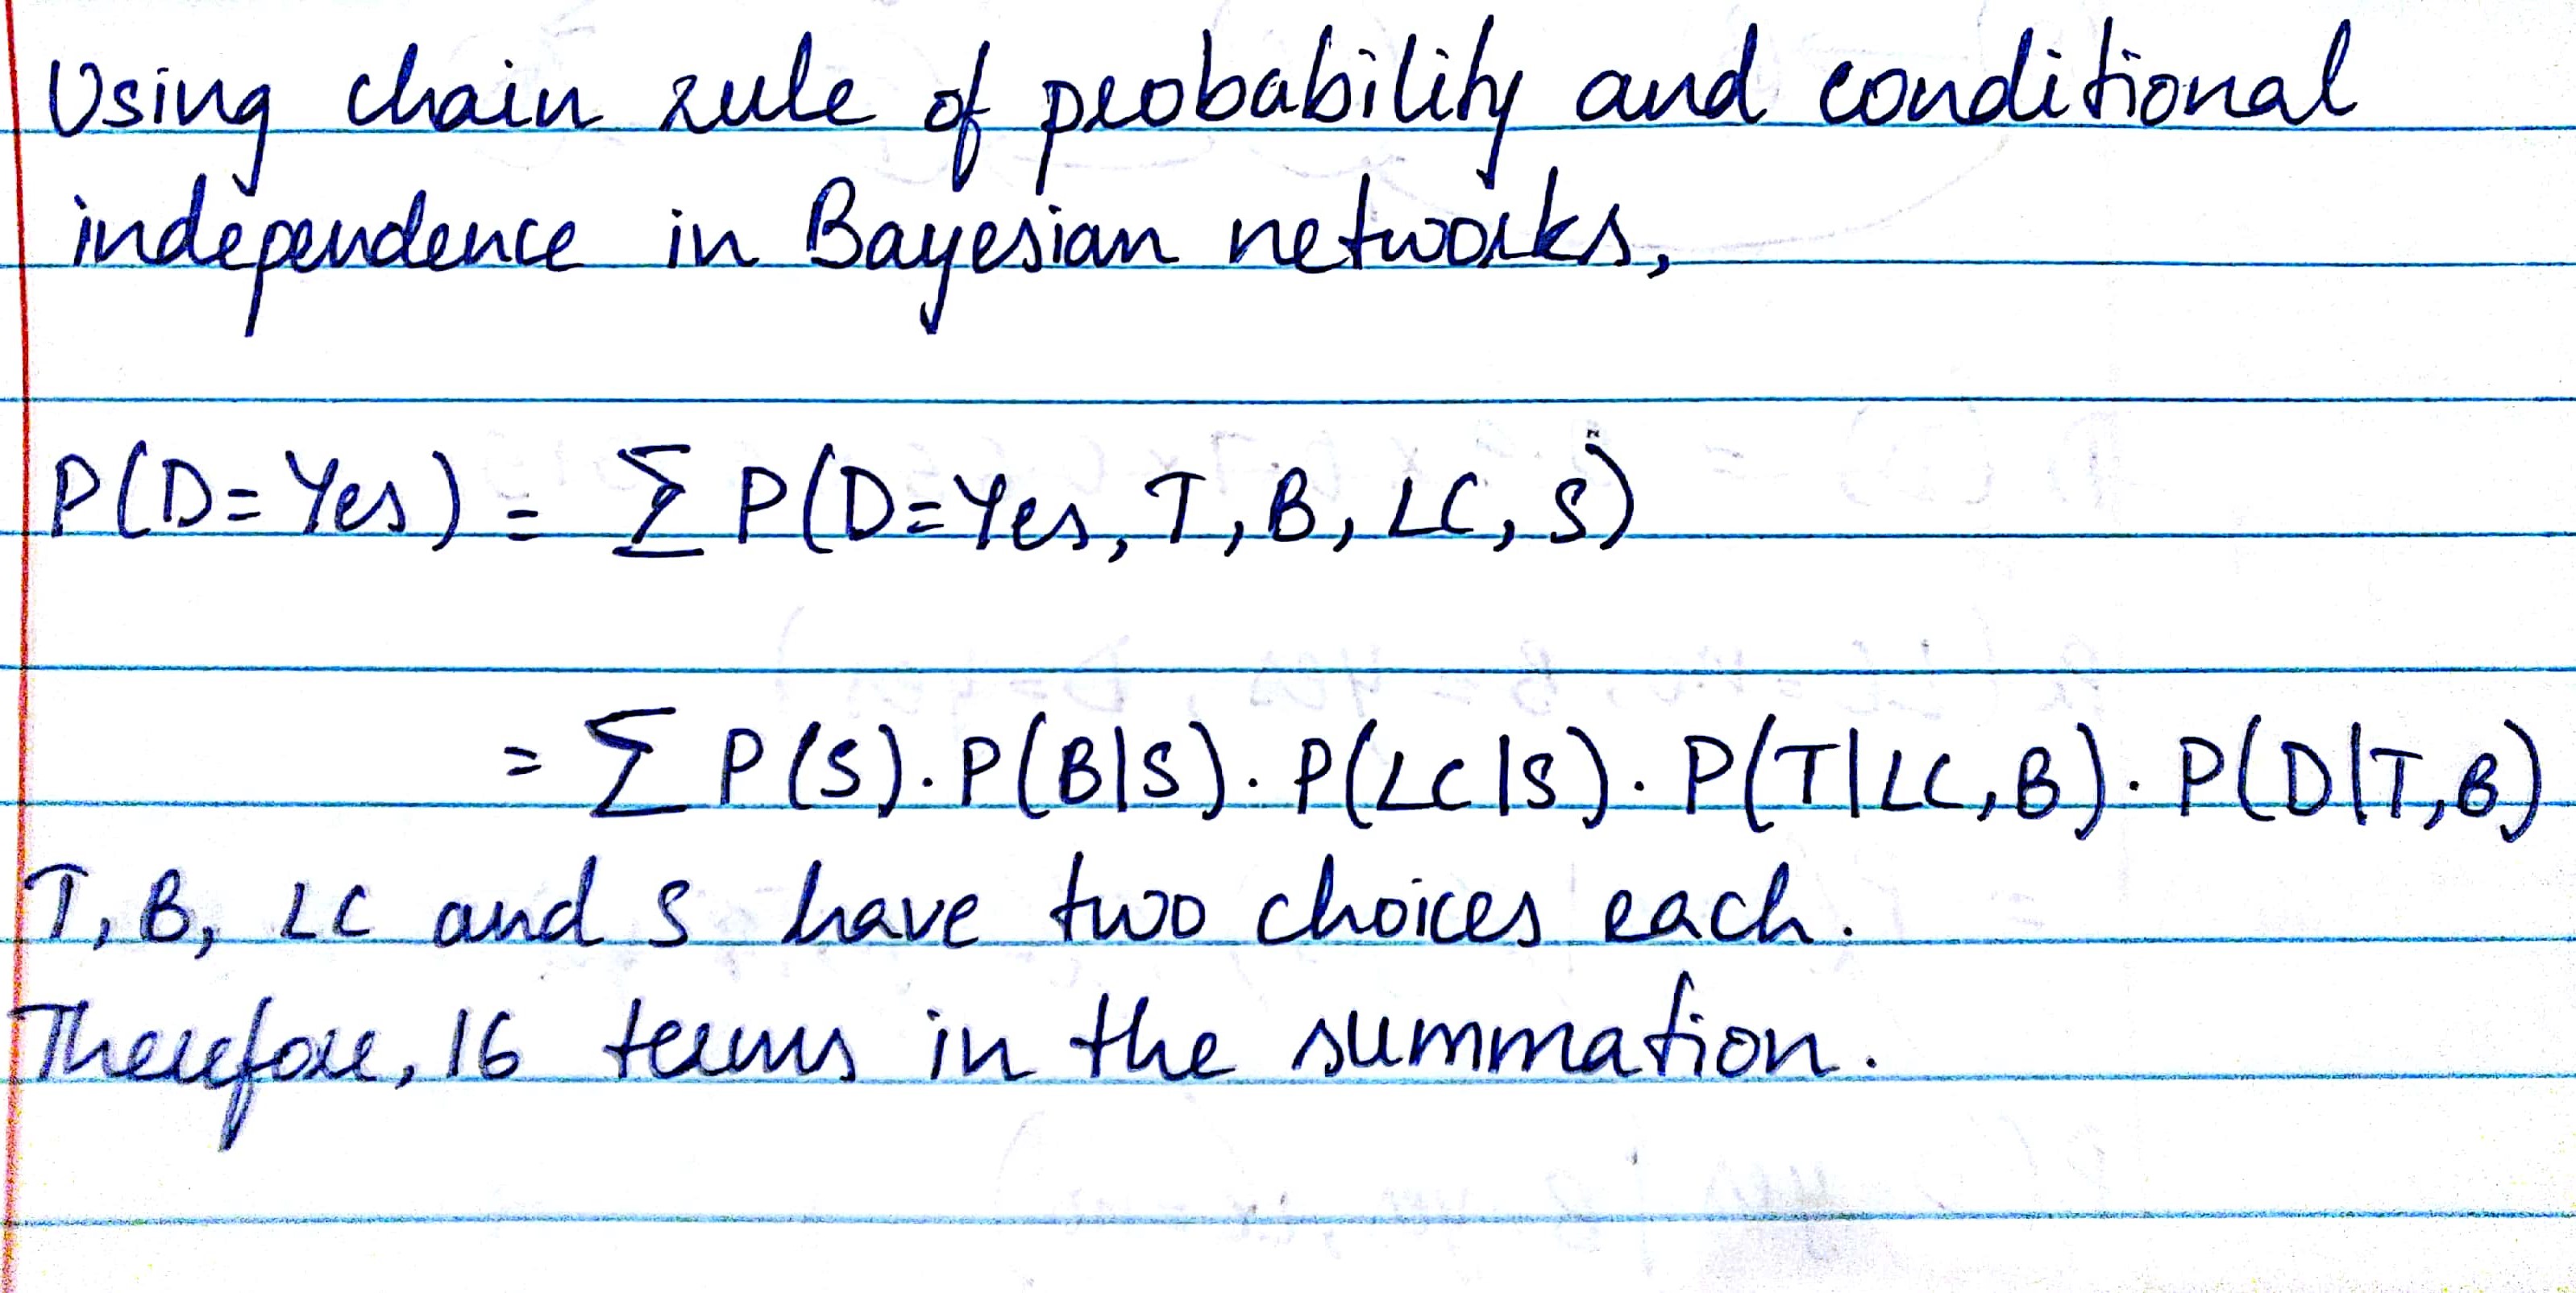 Using chain rule of probability and conditional
independence in Bayesian networks,
P(D=Yes) = ∑ P(D=Yes, T, B, LC, S)
= ∑ P(S). P(B|S). P(LC|S). P(T|LC,B). P(D|T,B)
T, B, LC and S have two choices each.
Therefore, 16 terms in the summation.